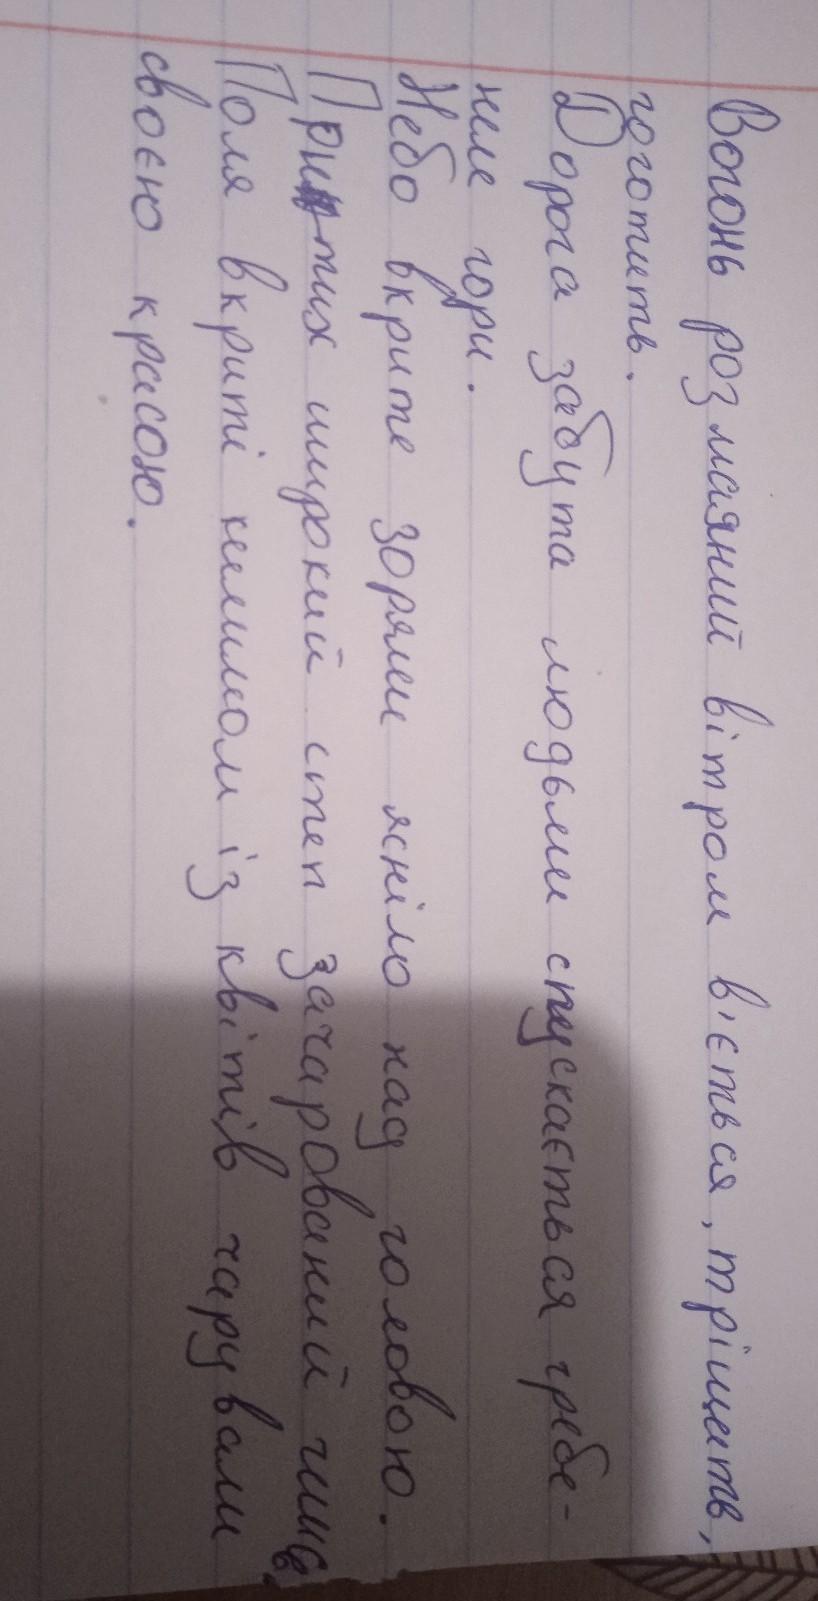 Вогонь розмаяний вітром в'ється, тріщить,
гоготить.
Дорога забута людьми спускається гребе-
нем гори.
Небо вкрите зорями ясніло над головою.
Притих широкий степ зачарований
Поля вкриті килимом із квітів чарували
своєю красою.